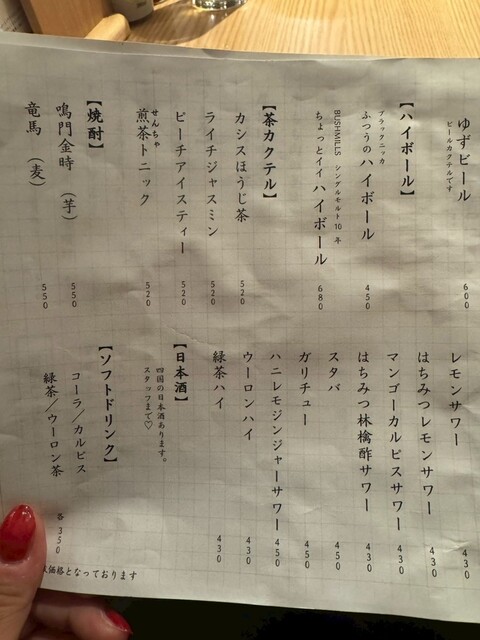 ゆずビール
ビールカクテルです
600
【ハイボール】
ブラックニッカ
ふつうのハイボール
450
BUSHMILLS シングルモルト10年
ちょっとイイハイボール
680
【茶カクテル】
カシスほうじ茶
520
ライチジャスミン
520
ピーチアイスティー
520
せんちゃ
煎茶トニック
520
【焼酎】
鳴門金時(芋)
550
竜馬(麦)
550
レモンサワー
430
はちみつレモンサワー
430
マンゴーカルピスサワー
430
はちみつ林檎酢サワー
430
スタバ
450
ガリチュー
450
ハニレモジンジャーサワー
450
ウーロンハイ
430
緑茶ハイ
430
【日本酒】
四国の日本酒あります。
スタッフまで♡
【ソフトドリンク】
コーラ/カルピス
緑茶/ウーロン茶
各350
価格となっております